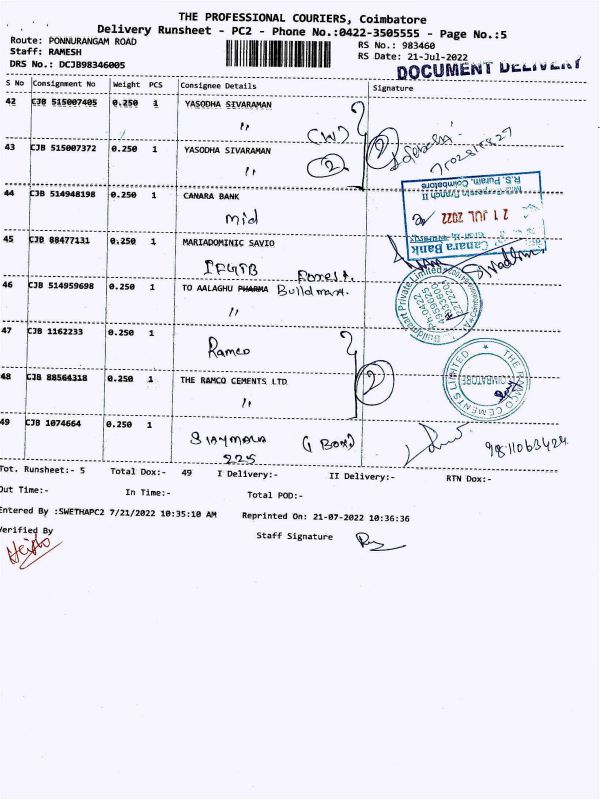 THE PROFESSIONAL COURIERS, Coimbatore
Delivery Runsheet - PC2 - Phone No.:0422-3505555 - Page No.:5
Route: PONNURANGAM ROAD
Staff: RAMESH
DRS No.: DCJB98346005
RS No.: 983460
RS Date: 21-Jul-2022
DOCUMENT DELIVERY
S No Consignment No Weight PCS Consignee Details Signature
42 CJB 515007405 0.250 1 YASODHA SIVARAMAN
"
(W)
43 CJB 515007372 0.250 1 YASODHA SIVARAMAN
" 2 2
44 CJB 514948198 0.250 1 CANARA BANK
Mid
R.S. Puram, Coimbatore
21 JUL 2022
Canara Bank
45 CJB 88477131 0.250 1 MARIADOMINIC SAVIO
IFGTB
46 CJB 514959698 0.250 1 TO AALAGHU PHARMA Buildmart.
"
Buildmart Private Limited
47 CJB 1162233 0.250 1
Ramco
48 CJB 88564318 0.250 1 THE RAMCO CEMENTS LTD
" 2
THE RAMCO CEMENTS LIMITED
COIMBATORE
49 CJB 1074664 0.250 1
225
Tot. Runsheet:- 5 Total Dox:- 49 I Delivery:- II Delivery:- RTN Dox:-
Out Time:- In Time:- Total POD:-
Entered By :SWETHAPC2 7/21/2022 10:35:10 AM Reprinted On: 21-07-2022 10:36:36
Verified By Staff Signature